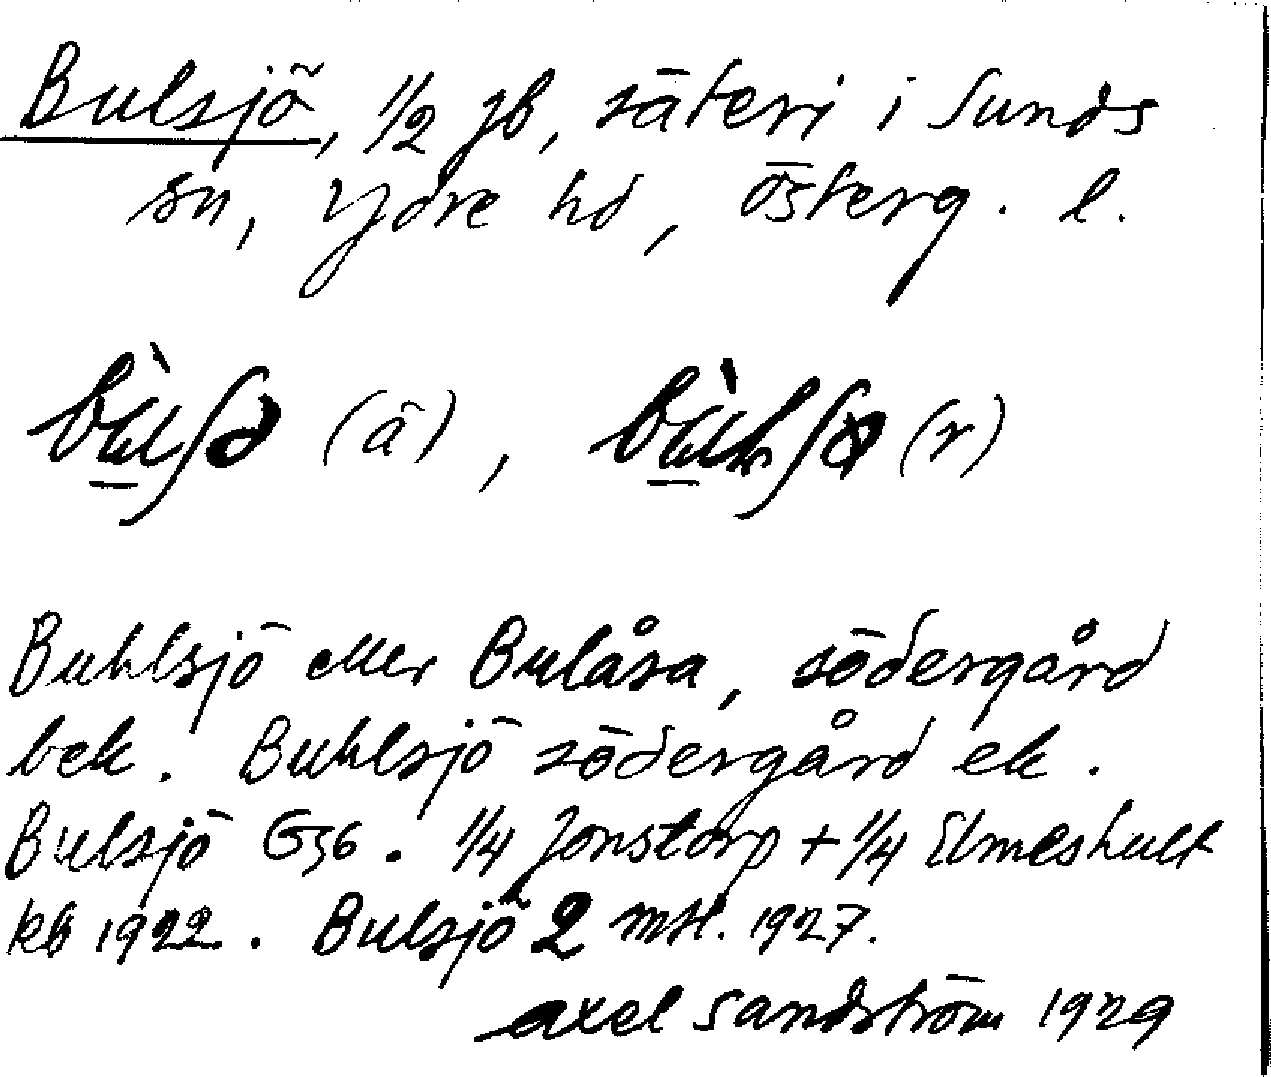 Bulsjö, 1/2 jb, säteri i Sunds
sn, Ydre hd, Österg. l.
(ä), (r)
Buhlsjö eller Bulåsa, södergård
bek. Buhlsjö södergård ek.
Bulsjö G36. 1/4 Jonstorp + 1/4 Elmeshult
kb 1922. Bulsjö 2 mtl. 1927.
Axel Sandström 1929